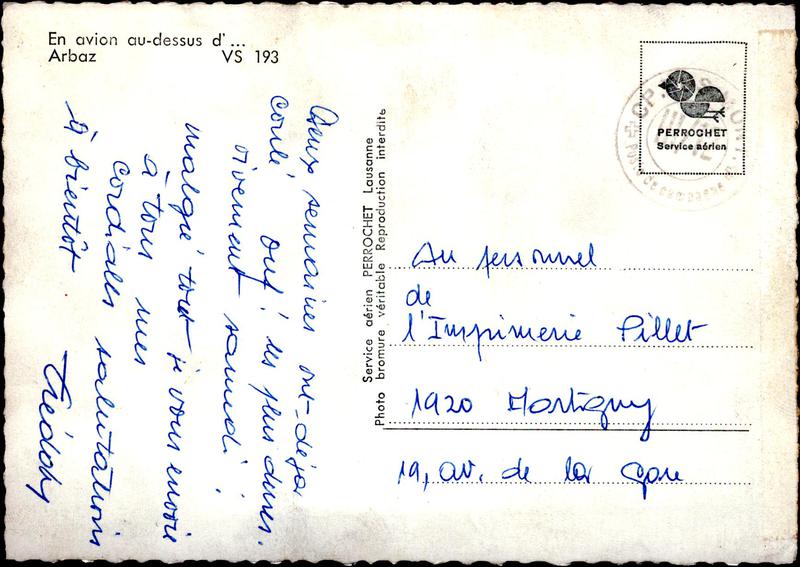 En avion au-dessus d'...
Arbaz VS 193
Deux semaines ont-déjà
coulé ouf! les plus dures.
vivement samedi!
malgré tout je vous envoie
à tous mes
cordiales salutations
à bientôt
Frédohy
Service aérien PERROCHET Lausanne
Photo bromure véritable Reproduction interdite
PERROCHET
Service aérien
Poste de campagne
Au personnel
de
l'Imprimerie Pillet
1920 Martigny
19, av. de la Gare